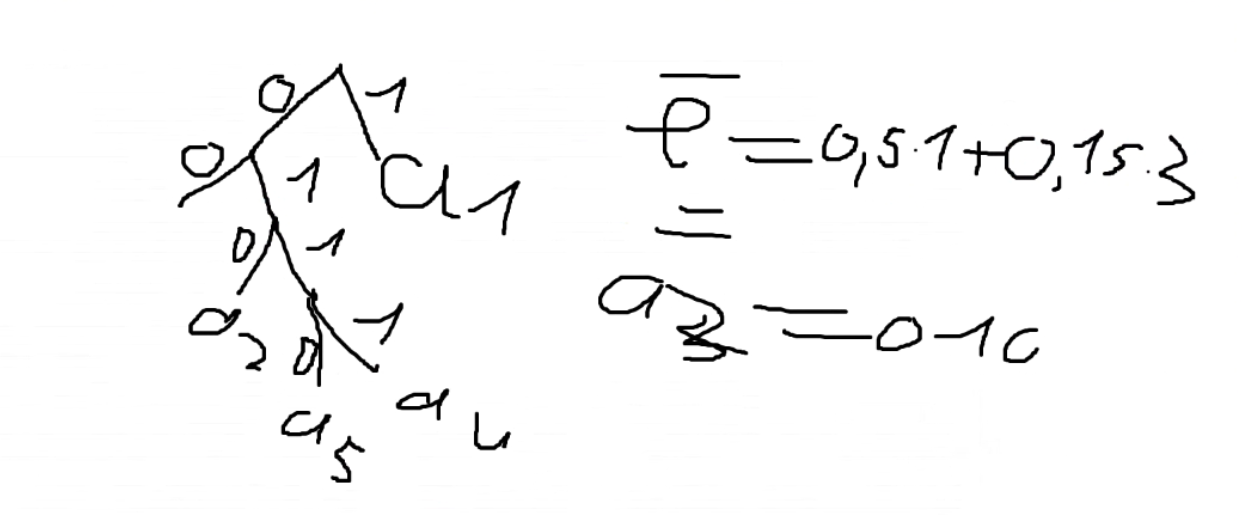 0 1
0 1 a1
0 1
a2 0 1
a5 a4
l̅ = 0,5·1+0,15·3
=
a2 = 010